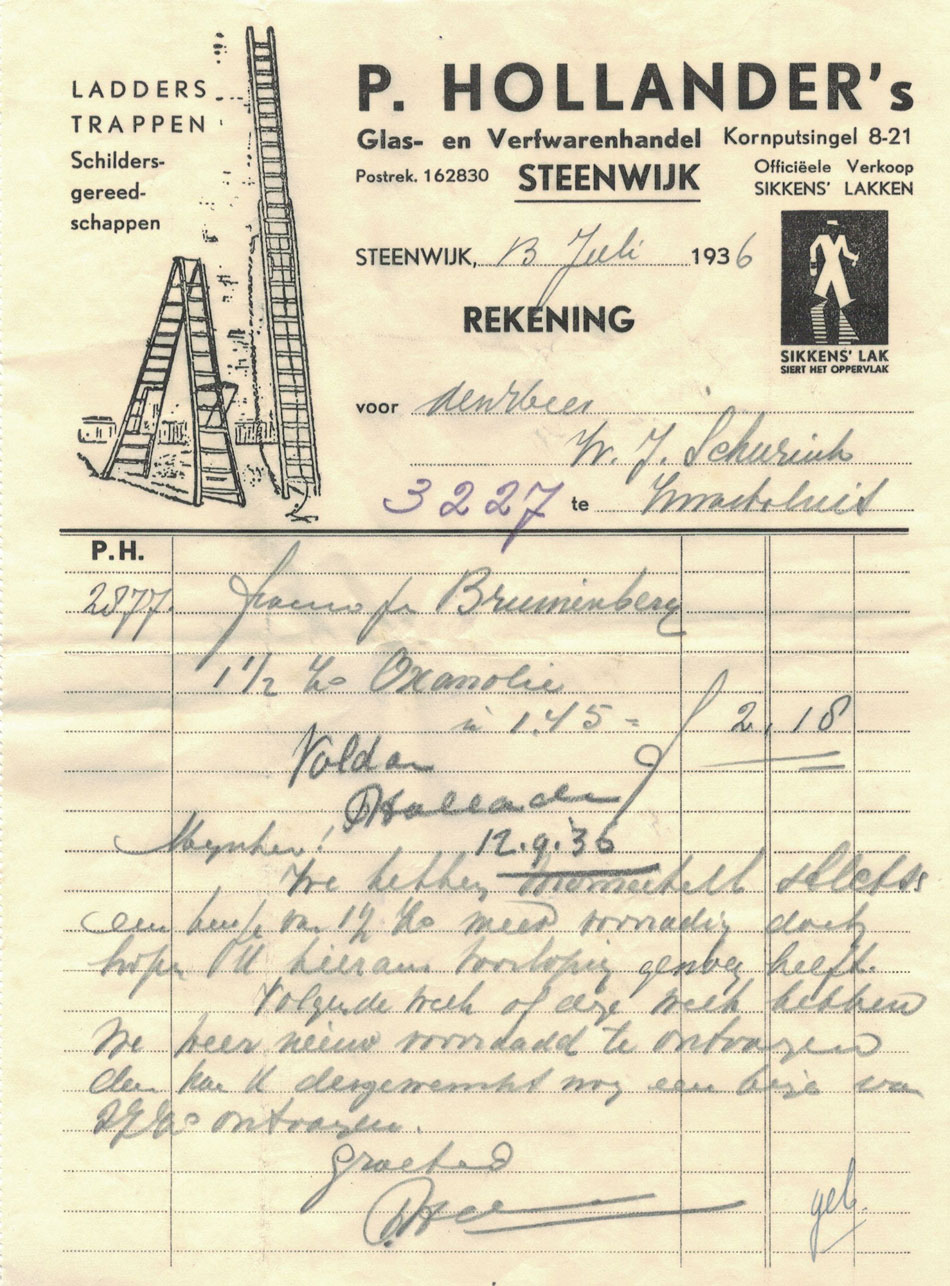 LADDERS
TRAPPEN
Schilders-
gereed-
schappen
P. HOLLANDER's
Glas- en Verfwarenhandel Kornputsingel 8-21
Postrek. 162830 STEENWIJK
Officiëele Verkoop
SIKKENS' LAKKEN
STEENWIJK, 13 Juli 1936
REKENING
SIKKENS' LAK
SIERT HET OPPERVLAK
voor den Heer
W. J. Schurink
3227 te
P.H.
2877. franco p Bruinenberg
1 1/2 Ko Oxanolie
à 1.45 = f 2,18
Voldaan
PHollander
12.9.36
Mynheer!
We hebben momenteel slechts
een van 1 1/2 Ko meer voorradig doch
hopen U hieraan voorlopig genoeg heeft.
Volgende week of deze week hebben
We weer nieuw voorraad te ontvangen
dan kan U desgewenscht nog een van
Ko ontvangen.
Groetend
PH